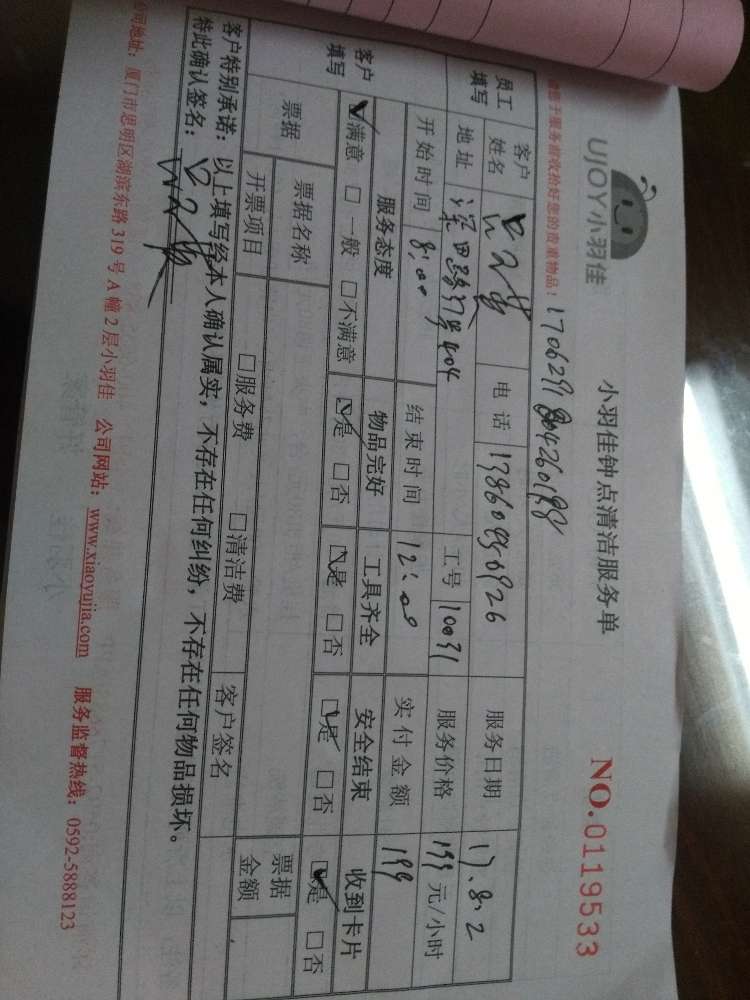 UJOY小羽佳
小羽佳钟点清洁服务单
NO.0119533
于服务前收拾好您的贵重物品！
员工填写 客户姓名 电话 服务日期 17.8.2
地址 404 工号 10031 服务价格 199 元/小时
开始时间 8:00 结束时间 12:00 实付金额 199
客户填写 服务态度 物品完好 工具齐全 安全结束 收到卡片
☑满意 □一般 □不满意 ☑是 □否 ☑是 □否 ☑是 □否 ☑是 □否
票据 票据名称 票据金额
开票项目 □服务费 □清洁费 客户签名
客户特别承诺：以上填写经本人确认属实，不存在任何纠纷，不存在任何物品损坏。
特此确认签名：
公司地址：厦门市思明区湖滨东路319号A幢2层小羽佳 公司网站：www.xiaoyujia.com 服务监督热线：0592-5888123